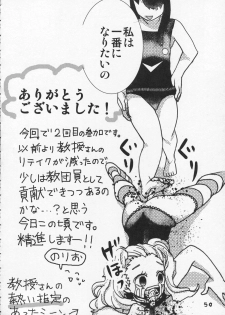 私は
一番に
なりたいの
ありがとう
ございました！
今回で2回目の参加です。
以前より教授さんの
リテイクが減ったので
少しは教団員として
貢献できつつあるの
かな…？と思う
今日この頃です。
精進します—!!
のりお
教授さんの
熱い指定の
あったシーン→
50